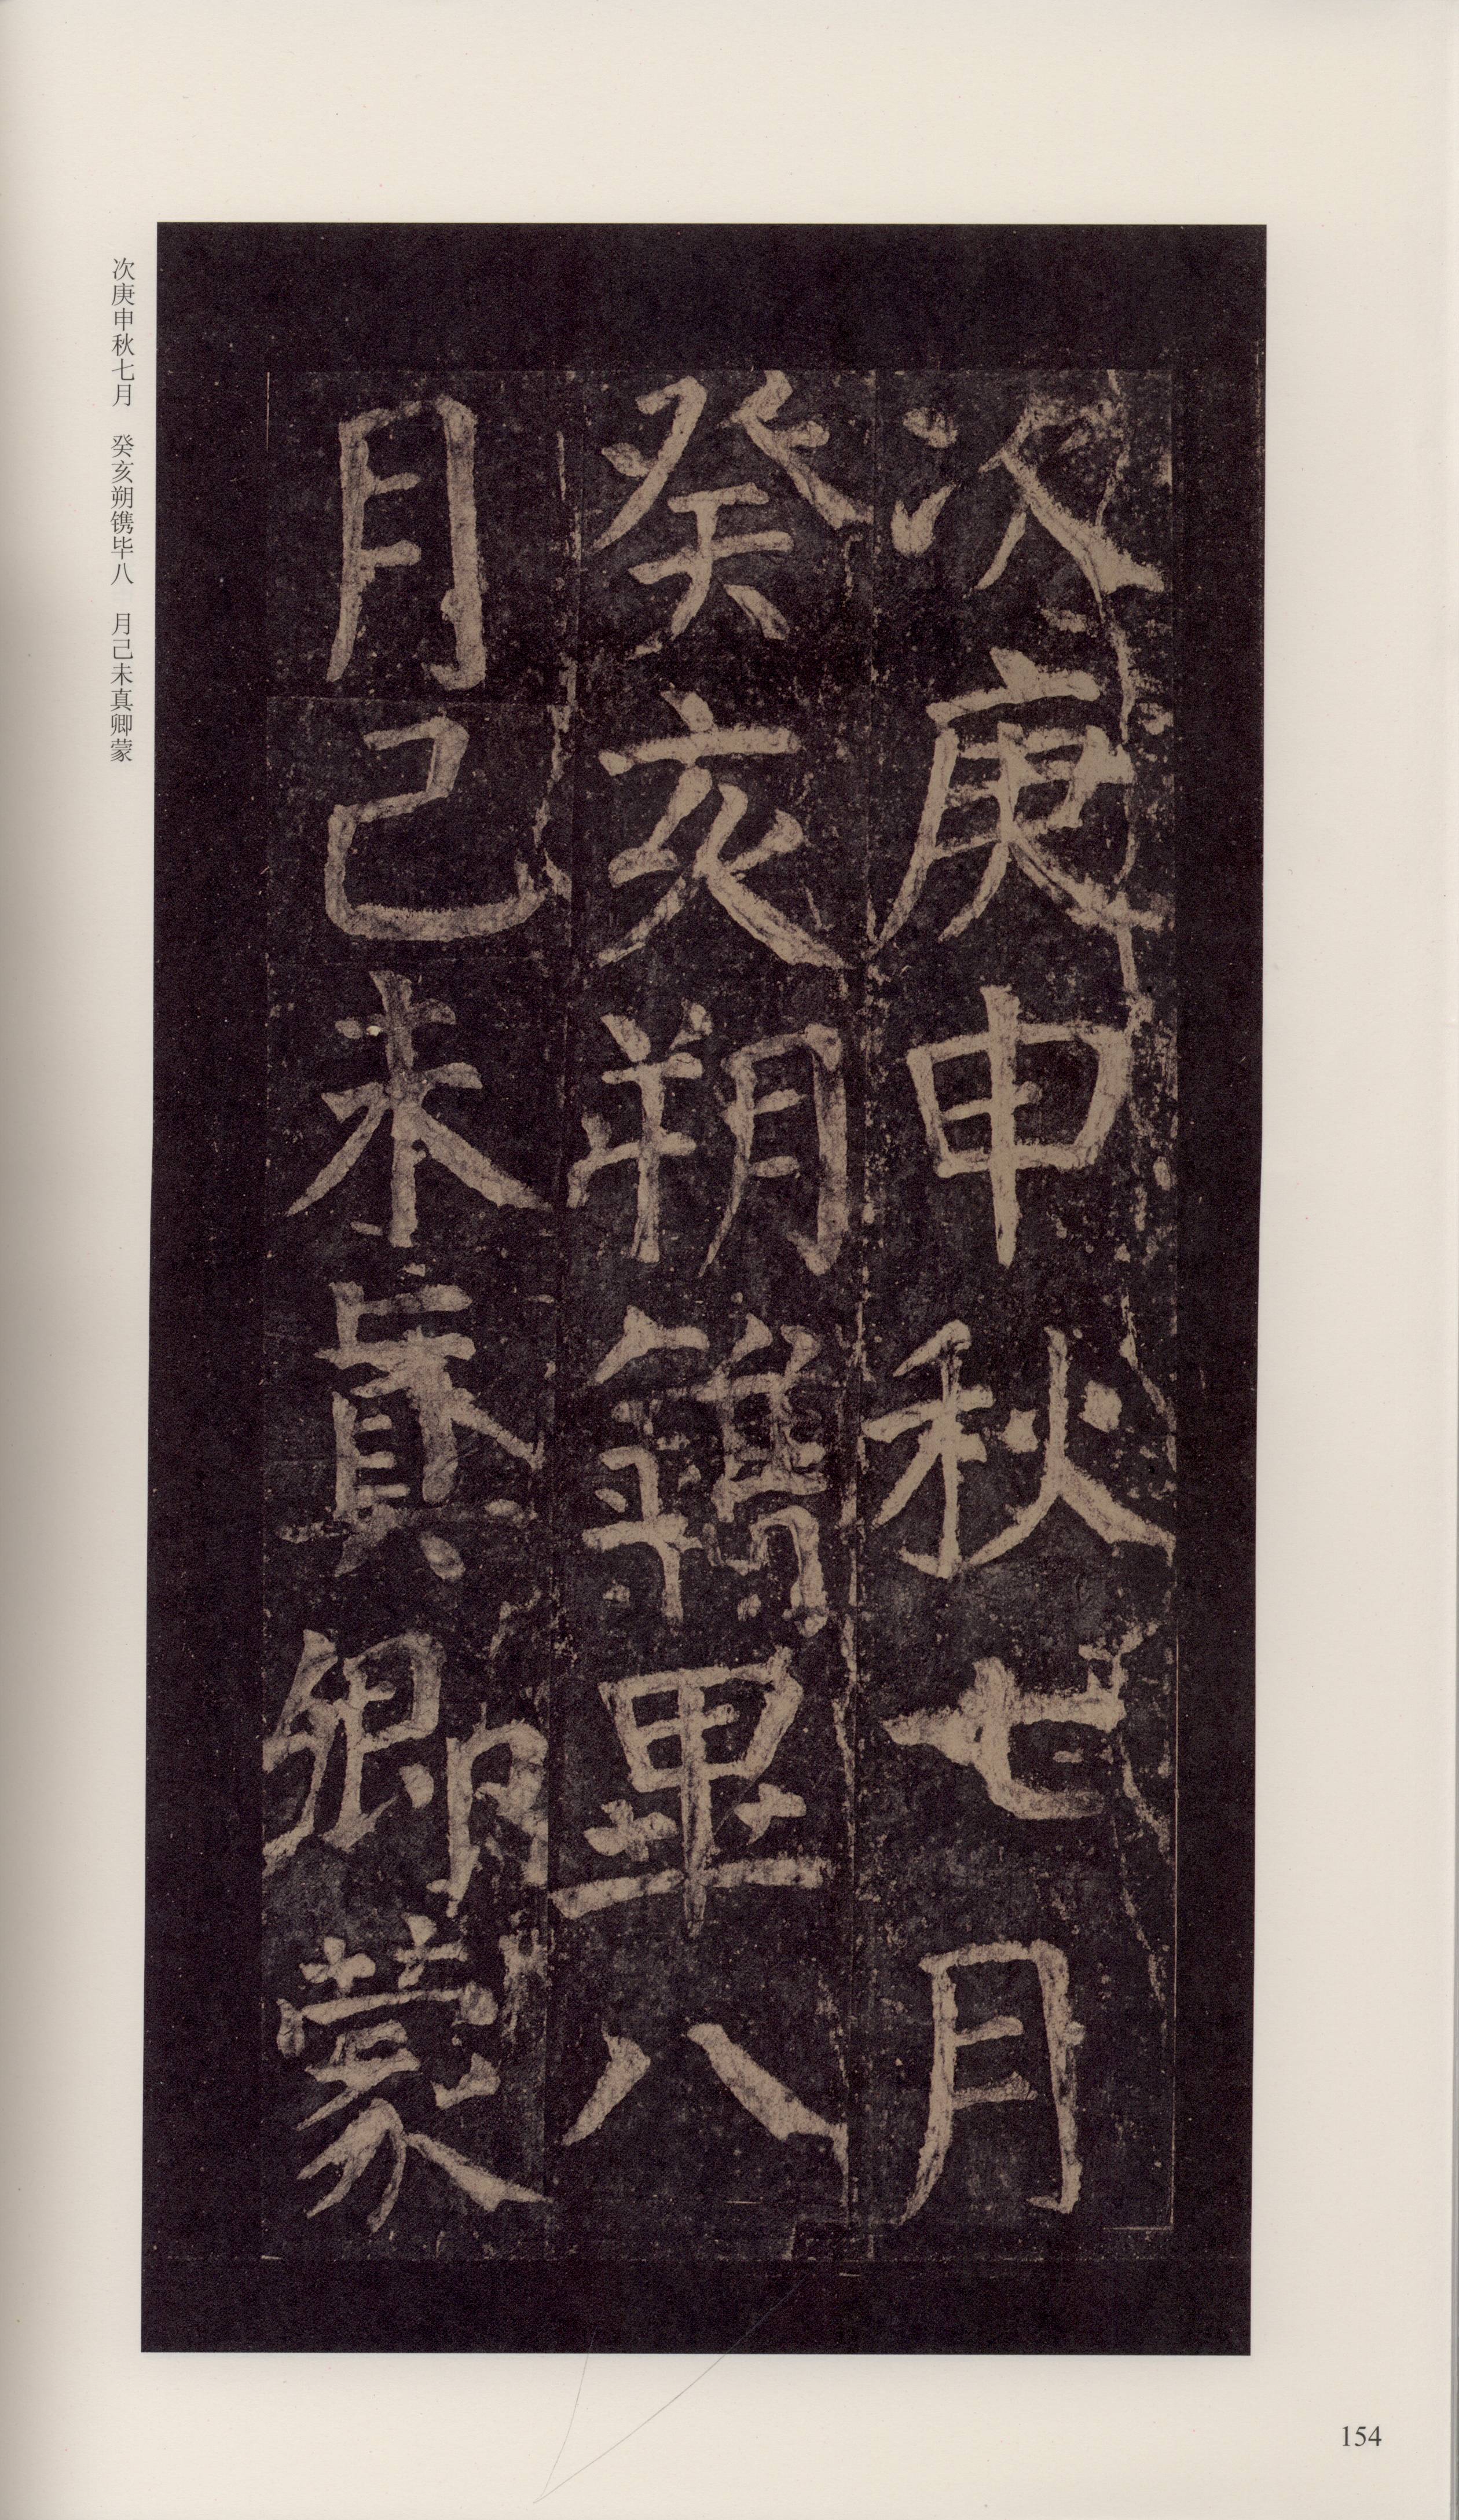 次庚申秋七月
癸亥朔鐫畢八
月己未真卿蒙
次庚申秋七月 癸亥朔镌毕八 月己未真卿蒙
154